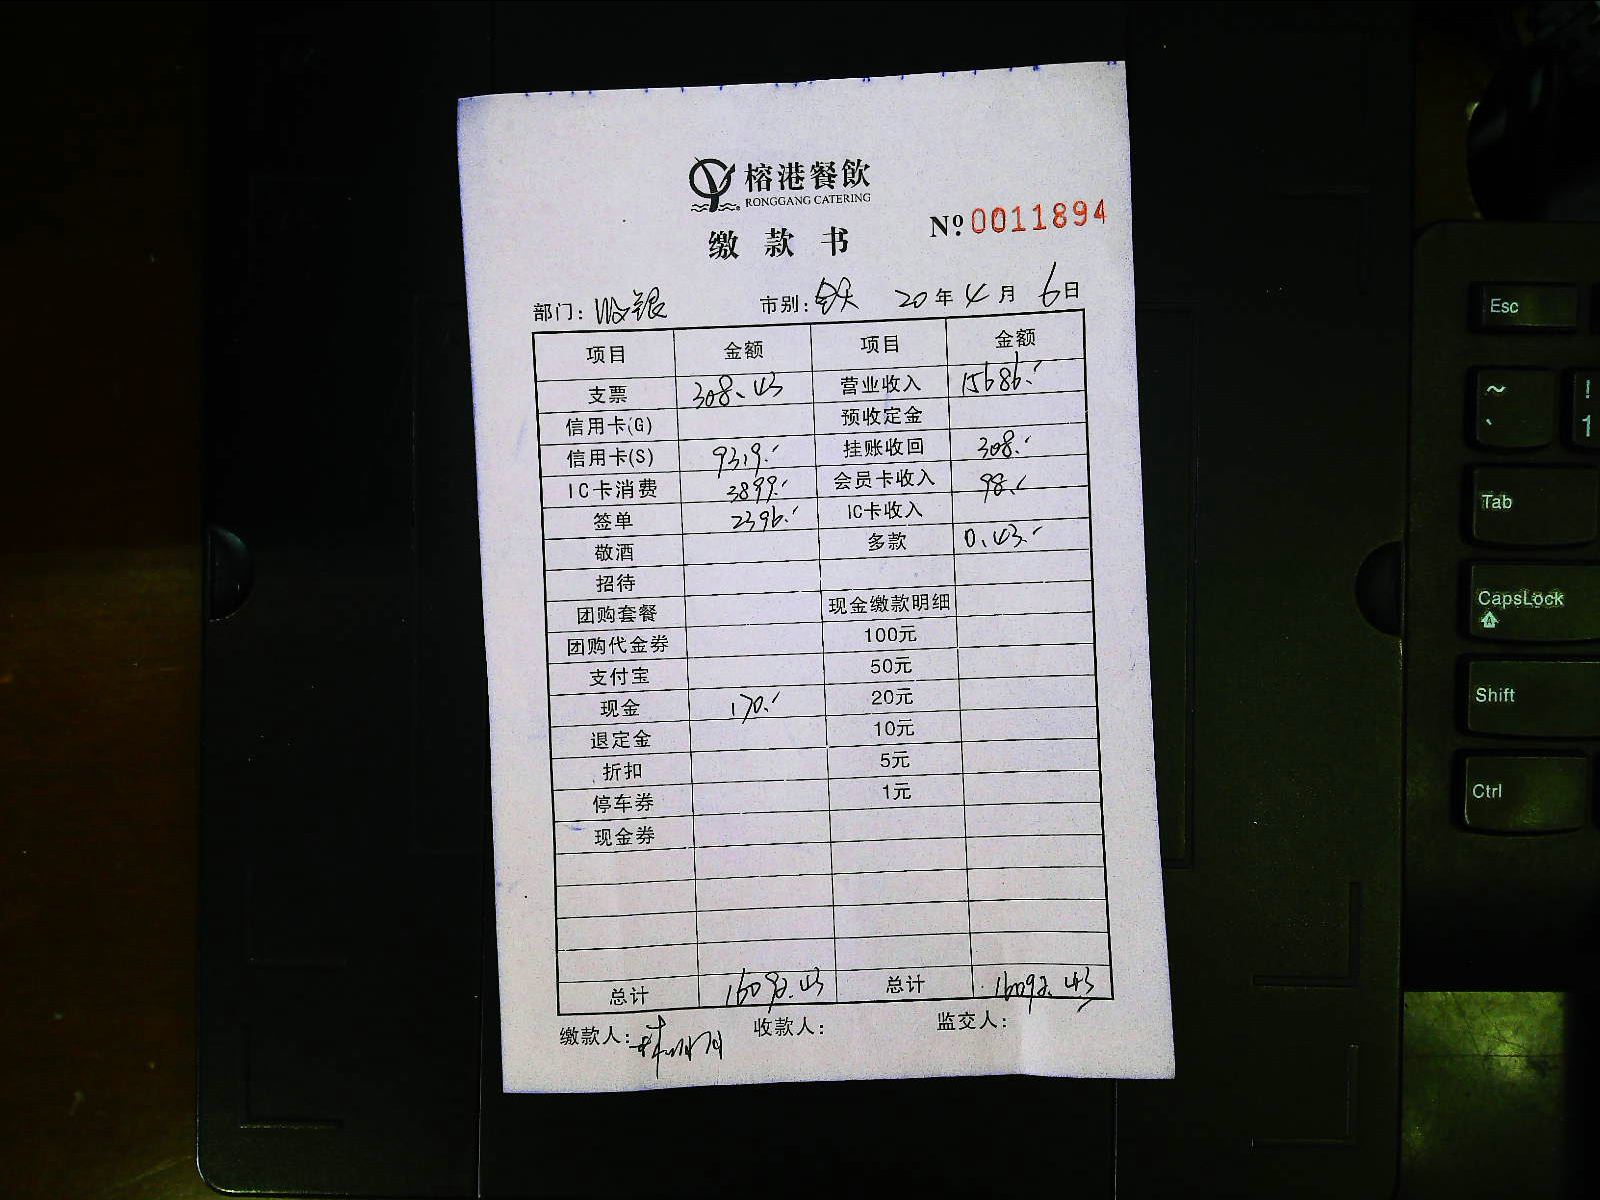 榕港餐飲
RONGGANG CATERING
缴款书
Nº 0011894
部门: 收银 市别: 全天 20年4月6日
项目 金额 项目 金额
支票 308.43 营业收入 15686.-
信用卡(G) 预收定金
信用卡(S) 9319.- 挂账收回 308.-
IC卡消费 3899.- 会员卡收入 98.-
签单 2396.- IC卡收入
敬酒 多款 0.43.-
招待
团购套餐 现金缴款明细
团购代金券 100元
支付宝 50元
现金 170.- 20元
退定金 10元
折扣 5元
停车券 1元
现金券
总计 16092.43 总计 16092.43
缴款人: 收款人: 监交人:
Esc
~
` ! 1
Tab
CapsLock
Shift
Ctrl